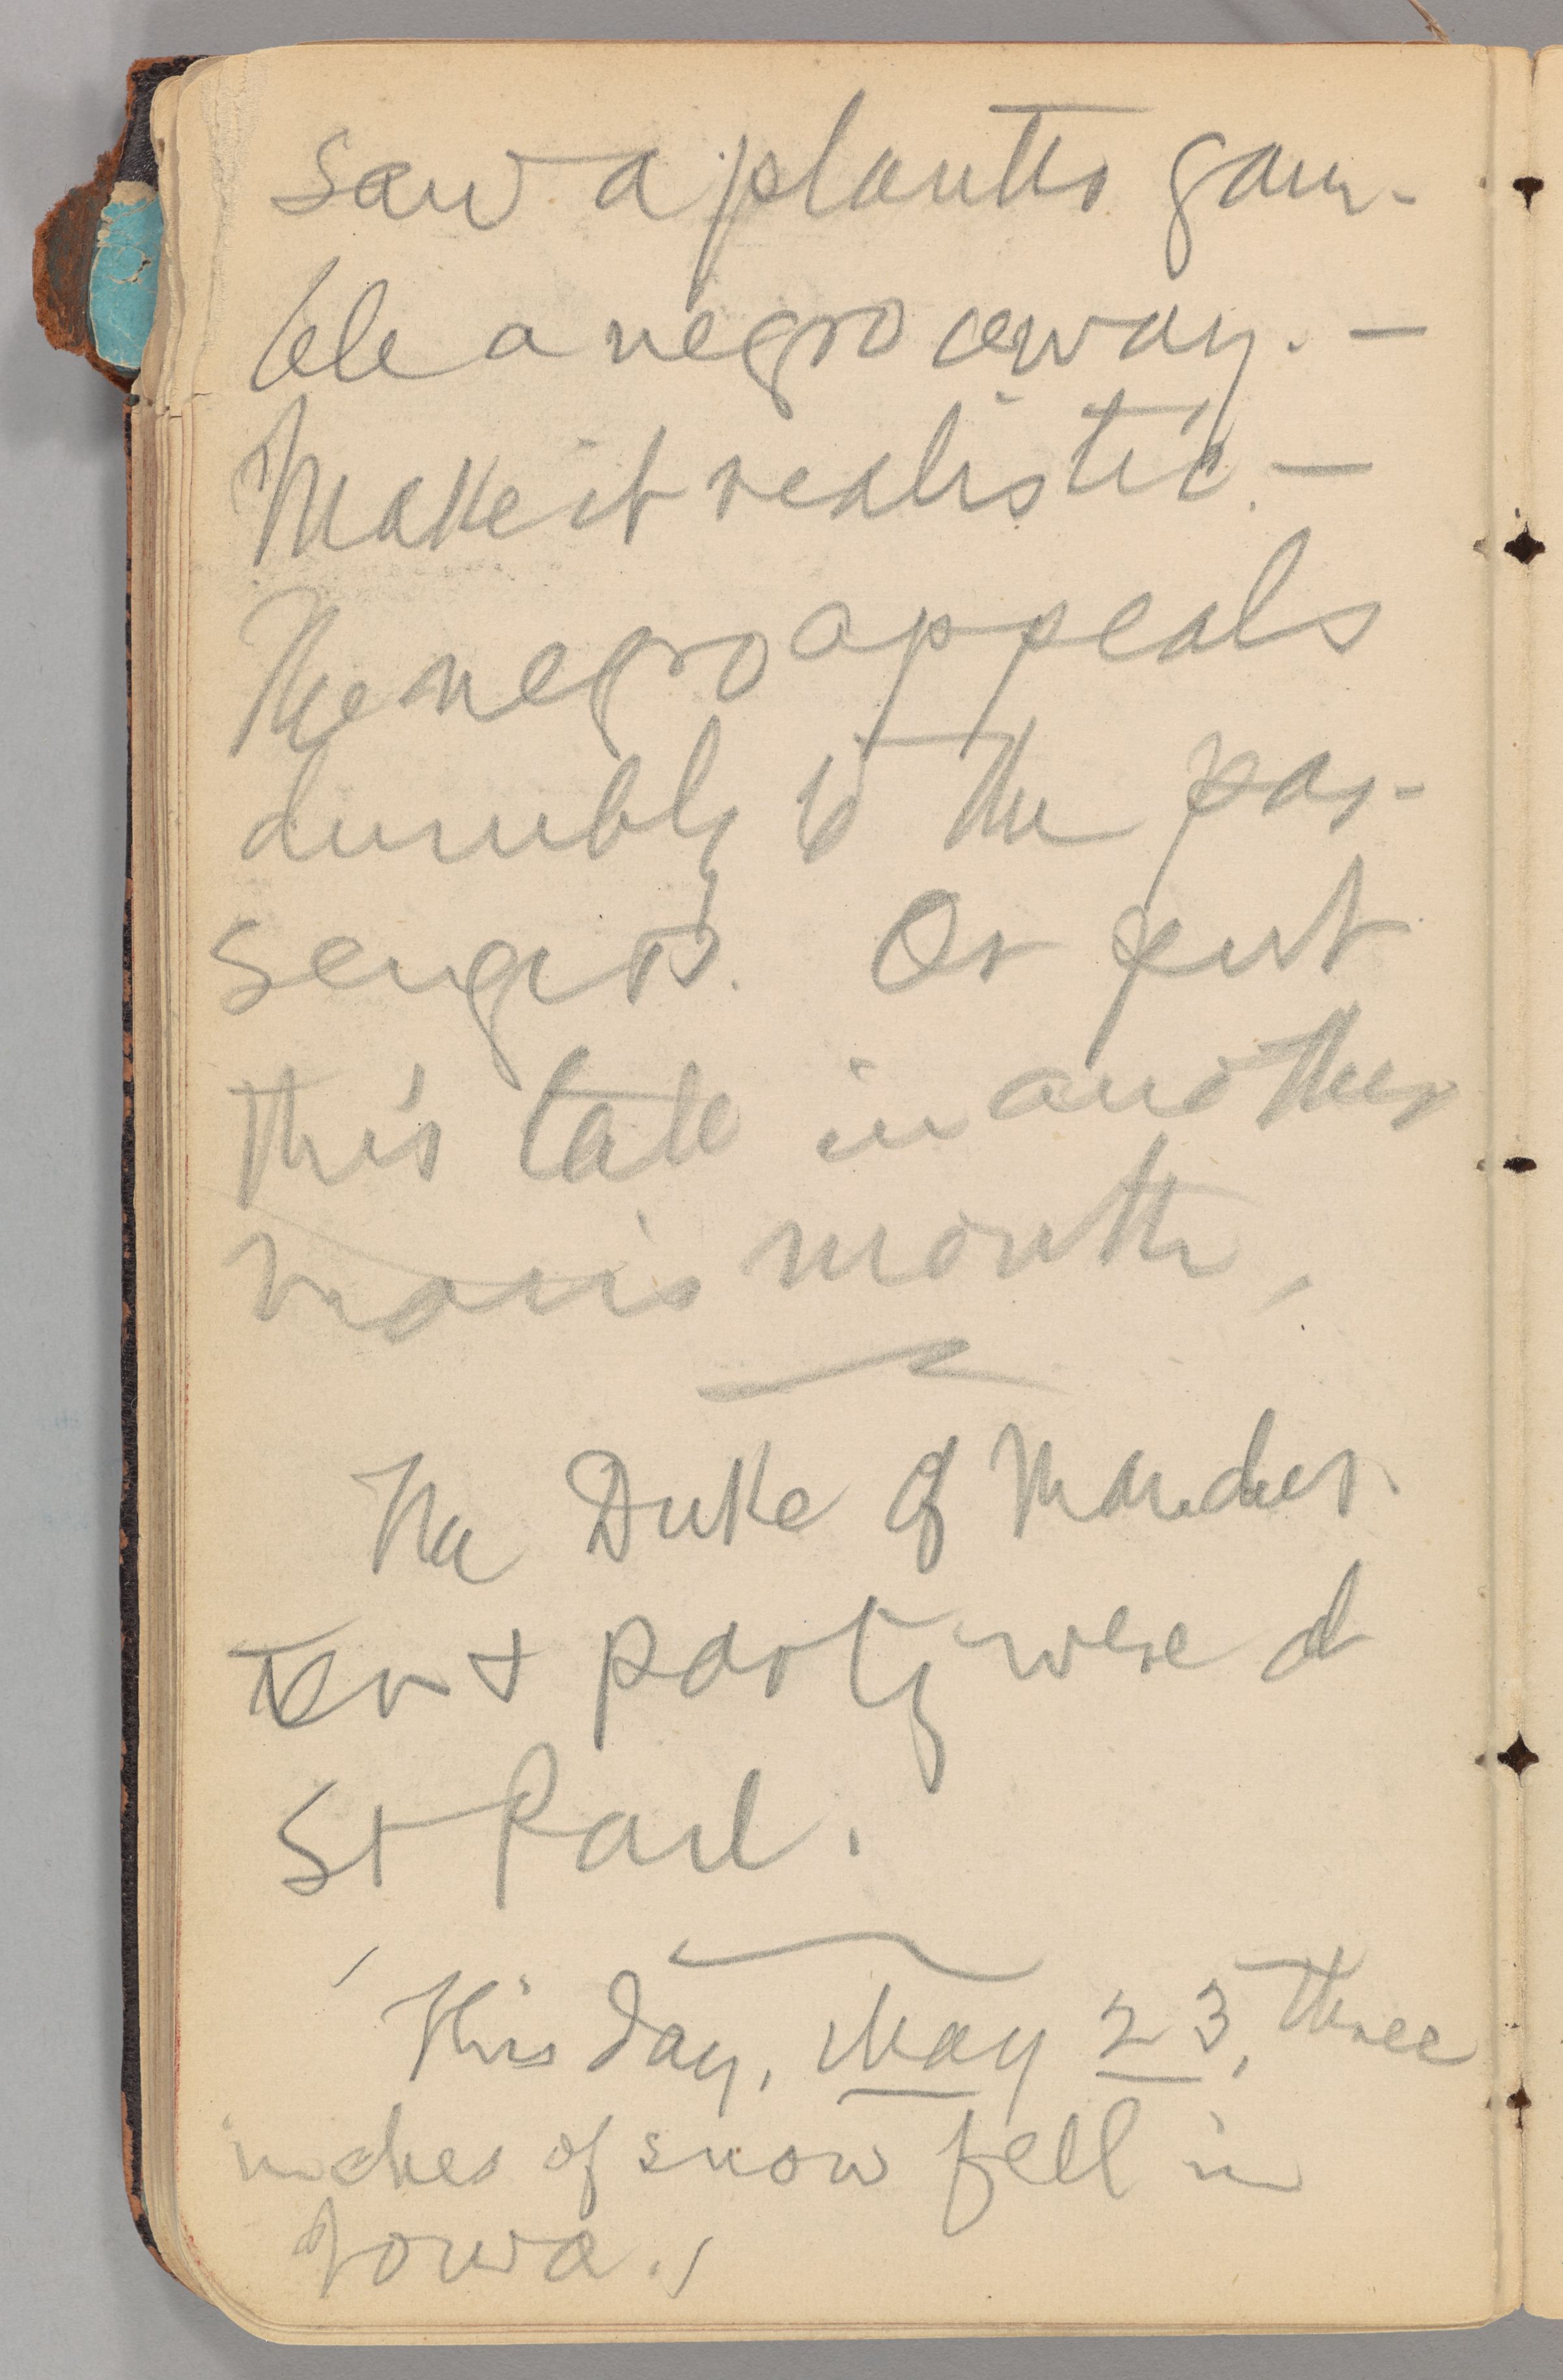 saw a planter gam-
ble a negro away. —
Make it realistic. —
The negro appeals
dumbly to the pas-
sengers. Or put
this tale in another
man's mouth.
The Duke of Manches-
ter & party were at
St Paul.
This day, May 23, three
inches of snow fell in
Iowa.